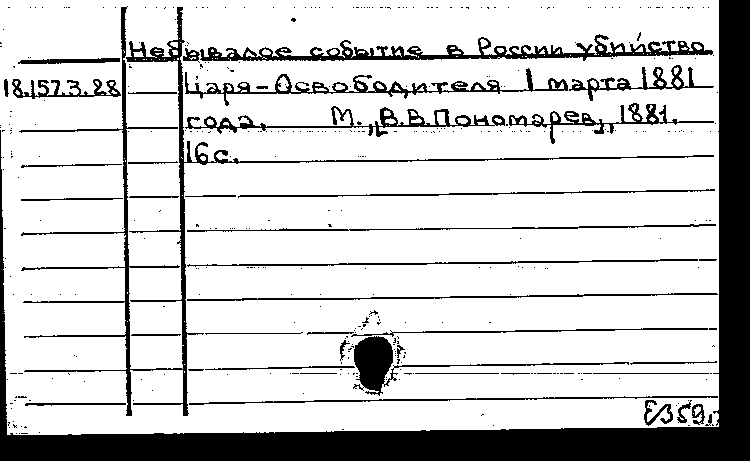 Небывалое событие в России убийство
18.157.3.28 Царя-Освободителя 1 марта 1881
года. М., [В.В. Пономарев], 1881.
16 с.